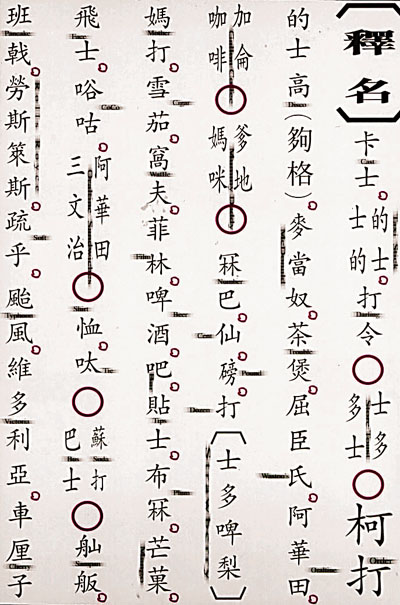 〔釋名〕
卡士
Cast
的士
士的
打令
Darling
士多
多士
柯打
Order
的士高(夠格)麥當奴茶煲屈臣氏阿華田
Disco
Trouble
Watson's
Ovaltine
加侖
咖啡
爹地
媽咪
冧巴仙磅打
Number
Cent
Pound
Dozen
〔士多啤梨〕
媽打雪茄窩夫菲林啤酒吧貼士布冧芒菓
Mother
Cigar
Waffle
Film
Beer
Tips
Plum
飛士唂咕
Face
CoCo
阿華田
三文治
恤呔
Shirt
Tie
蘇打
巴士
Soda
Bus
舢舨
Sampan
班戟勞斯萊斯疏乎颱風維多利亞車厘子
Pancake
Soft
Typhoon
Victoria
Cherry